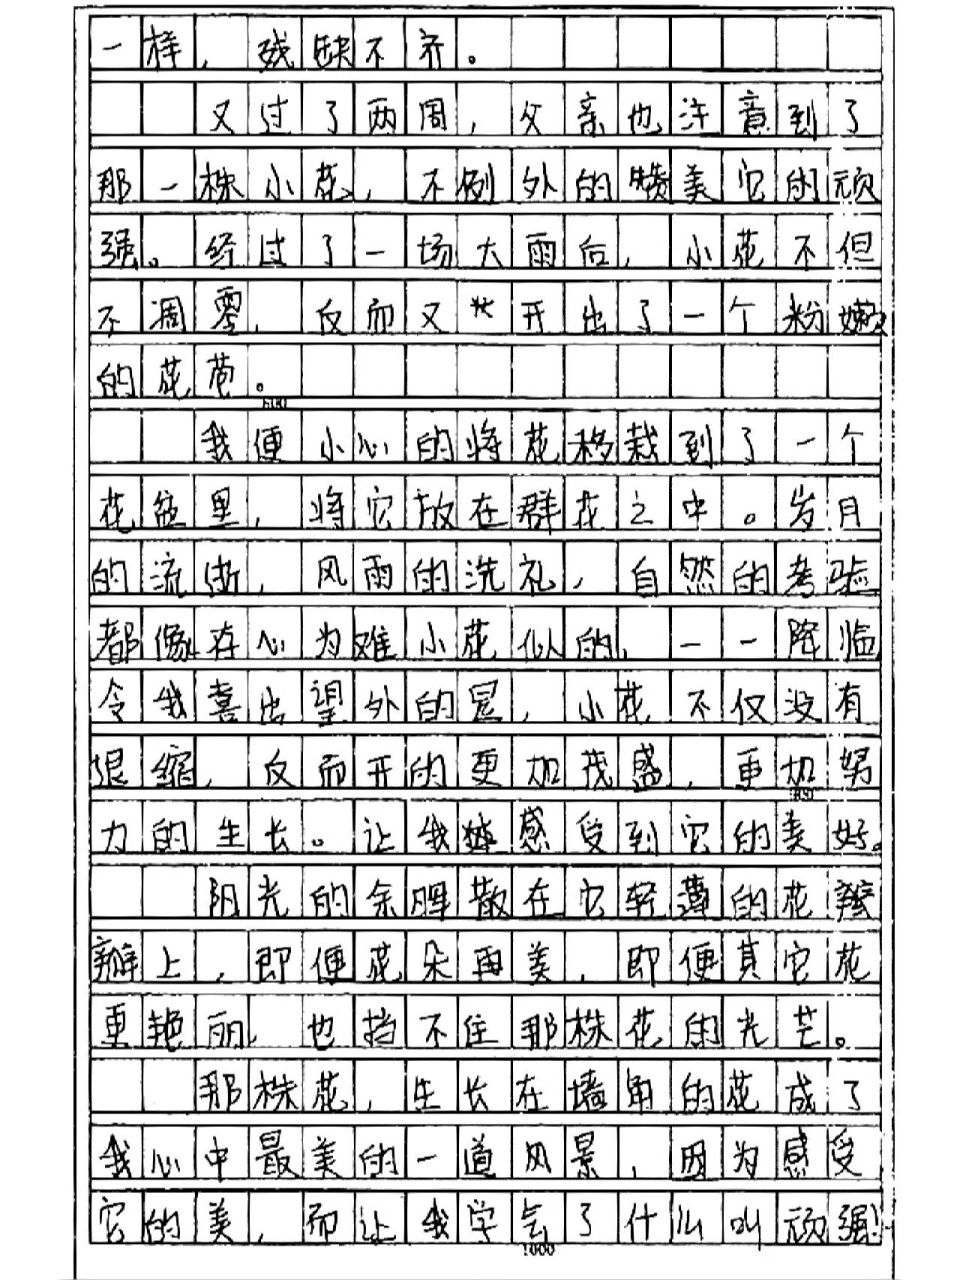 一样，残缺不齐。
又过了两周，父亲也注意到了
那一株小花，不例外的赞美它的顽
强。经过了一场大雨后，小花不但
不凋零，反而又开出了一个粉嫩
的花苞。
600
我便小心的将花移栽到了一个
花盆里，将它放在群花之中。岁月
的流逝，风雨的洗礼，自然的考验
都像在心为难小花似的，一一降临
令我喜出望外的是，小花不仅没有
退缩，反而开的更加茂盛，更加努
800
力的生长。让我感受到它的美好。
阳光的余晖散在它轻薄的花
瓣上，即便花朵再美，即便其它花
更艳丽，也挡不住那株花的光芒。
那株花，生长在墙角的花成了
我心中最美的一道风景，因为感受
它的美，而让我学会了什么叫顽强！
1000